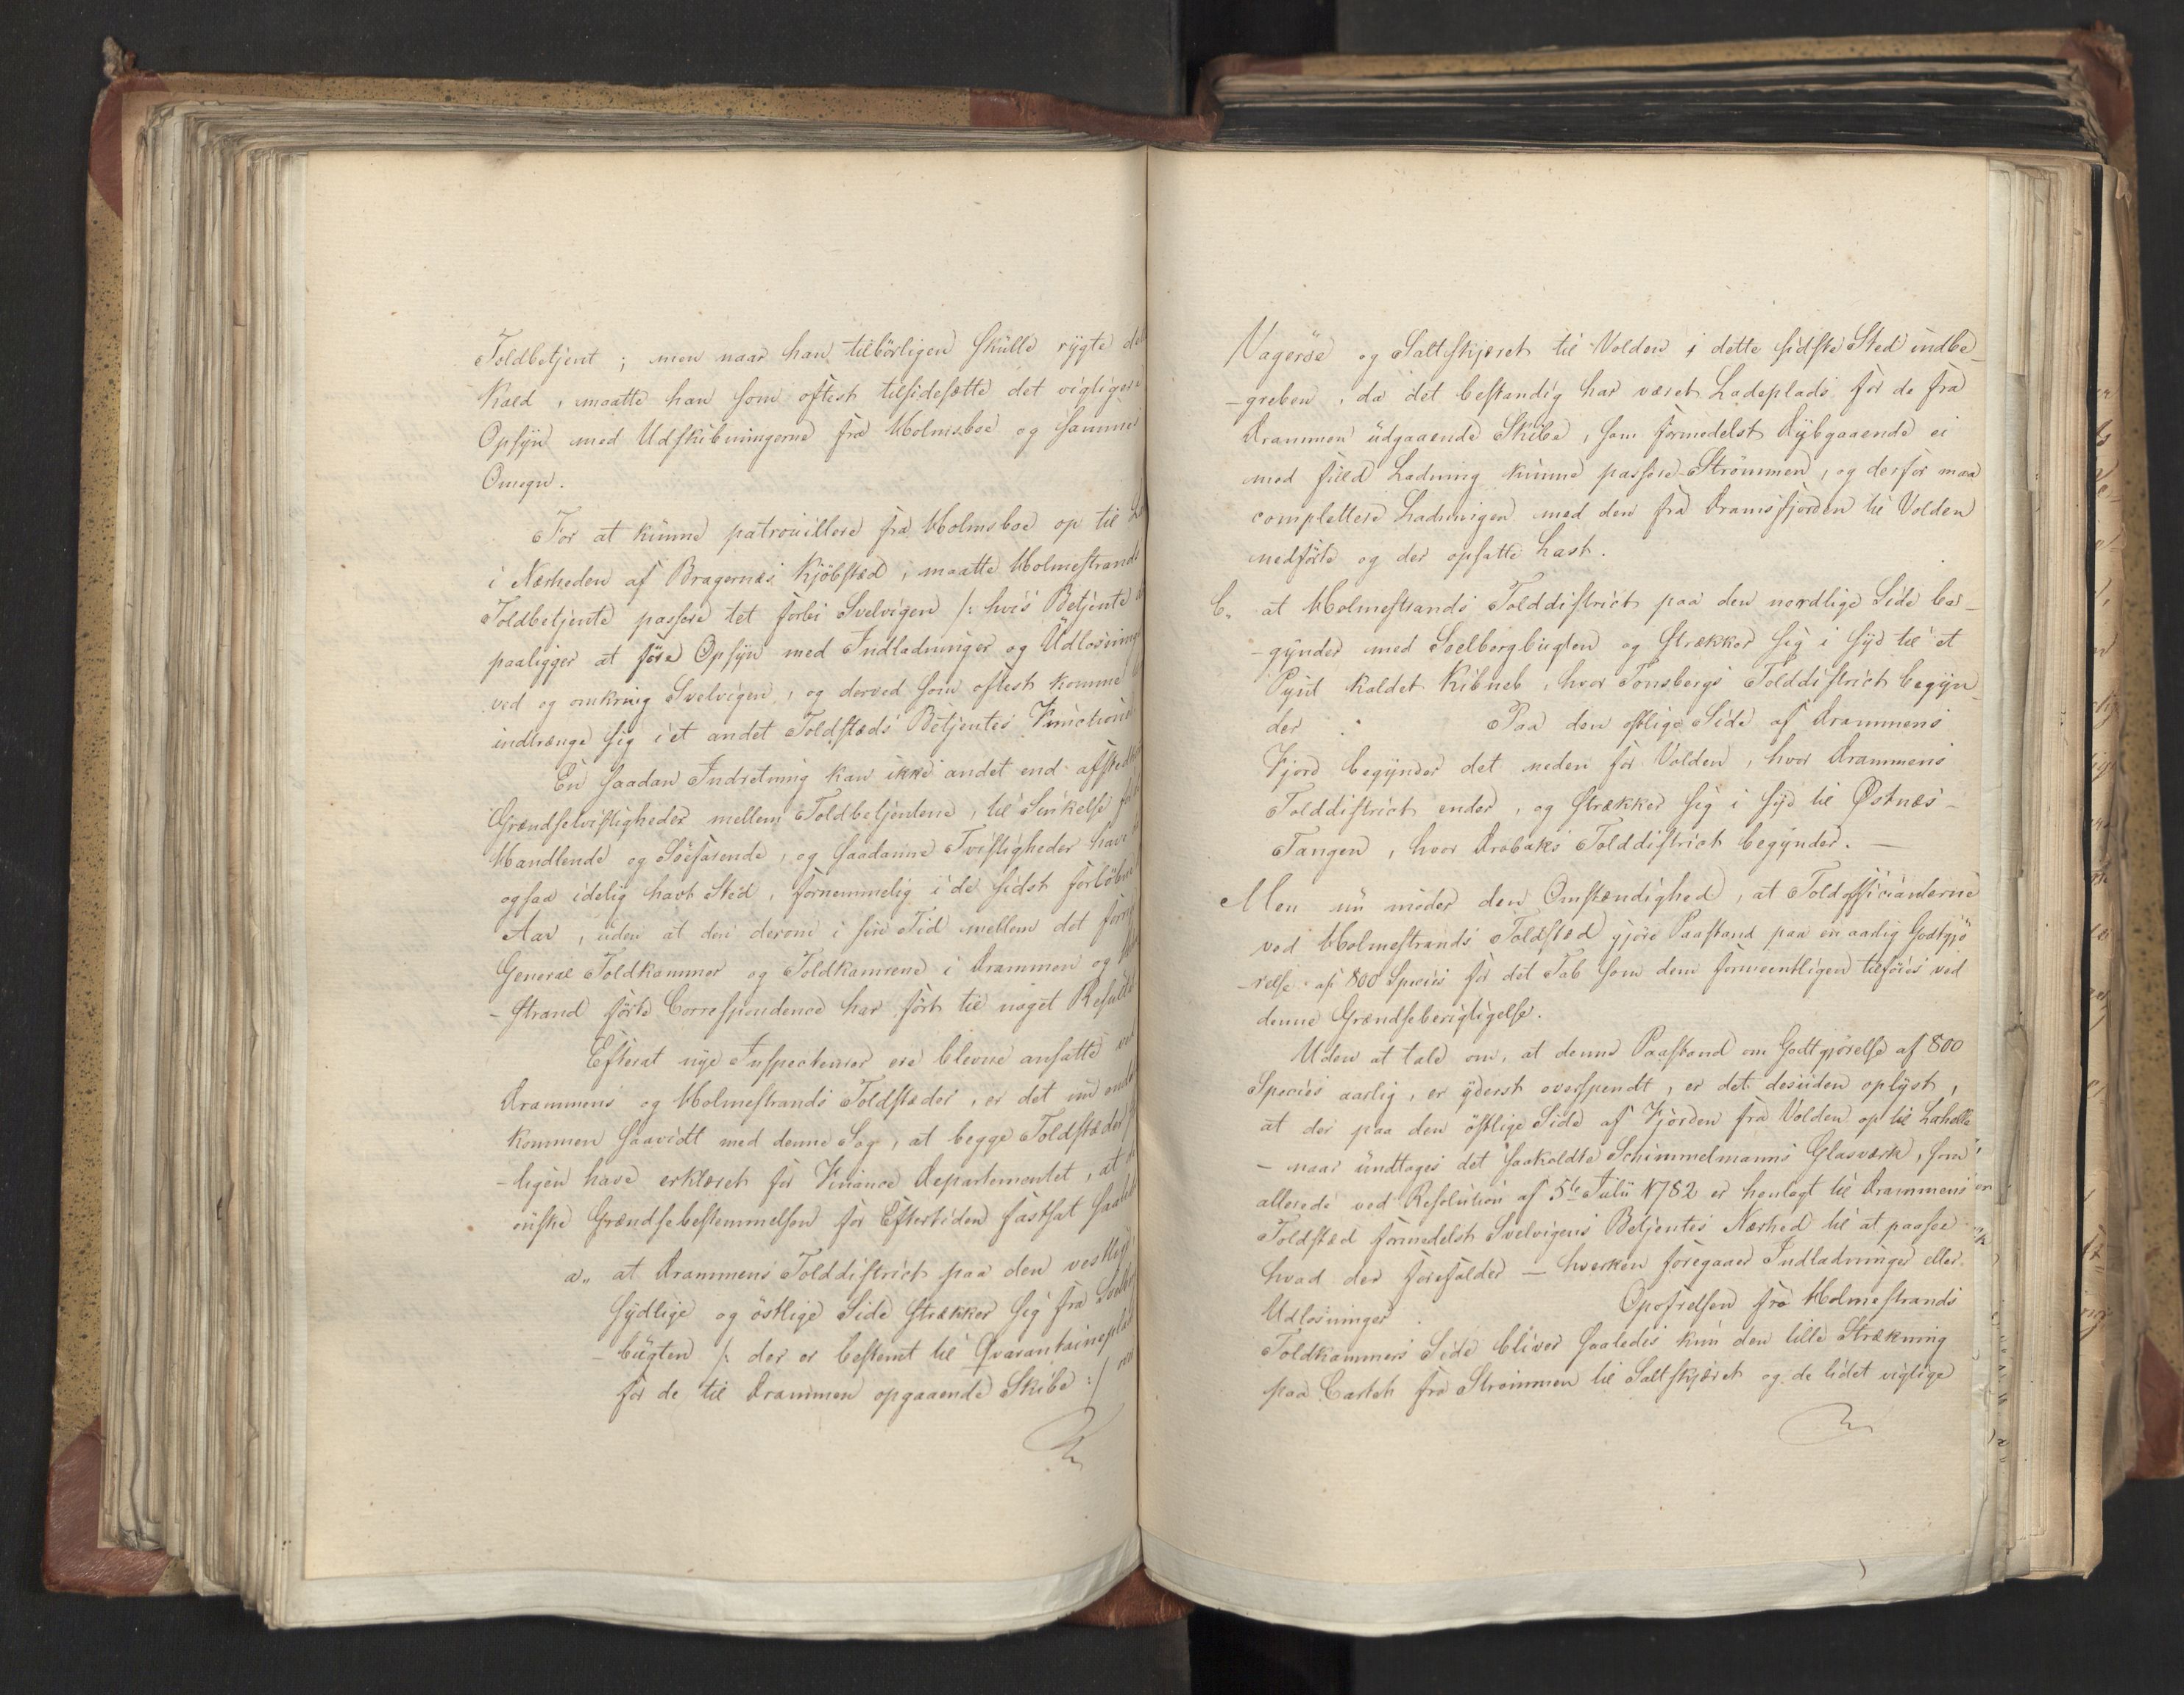 Toldbetjent; men naar han tilbörligen skulle rygte
Kald, maatte han som oftest tilsidesætte det vigtigere
Opsyn med Udskibningerne fra Holmsboe og sammes
Omegn.
For at kunne patrouillere fra Holmsboe op til
i Nærheden af Bragernæs Kjöbstæd, maatte Holmestrands
Toldbetjente passere tet forbi Svelvigen /: hvis Betjente
paaligger at före Opsyn med Indladninger og Udlosninger
ved og omkring Svelvigen, og derved som oftest komme
indtrænge sig i et andet Toldstæds Betjentes Function
En saadan Indretning kan ikke andet end afstedk
Grændsetvistigheder mellem Toldbetjentene, til Sinkelse for
Handlende og Söefarende, og saadanne Tvistigheder have
ogsaa idelig havt Sted, fornemmelig i de sidst forlöbne
Aar, uden at den derom i sin Tid mellem det forrige
General Toldkammer og Toldkamrene i Drammen og
-strand förte Correspondence har fört til noget Resultat
Efterat nye Inspecteurer ere blevne ansatte ved
Drammens og Holmestrands Toldstæder, er det nu
kommen saavidt med denne Sag, at begge Toldstæder
-ligen have erklæret for Finance Departementet, at
önske Grændsebestemmelsen for Eftertiden fastsat saaledes
a„ at Drammens Tolddistrict paa den vestlige
sydlige og östlige Side strækker sig fra
-bugten /: der er bestemt til Qvarantaineplads
for de til Drammen opgaaende Skibe :/
Vageröe og Saltskjæret til Volden i dette sidste Sted indbe-
-greben, da det bestandig har været Ladeplads for de fra
Drammen udgaaende Skibe, som formedelst Dybgaaende ei
med fuld Ladning kunne passere Strömmen, og derfor maa
complettere Ladningen med den fra Dramsfjorden til Volden
nedförte og der opsatte Last.
b„ at Holmestrands Tolddistrict paa den nordlige Side be-
-gynder med Soelbergbugten og strækker sig i Syd til et
Pynt kaldet Kibneb, hvor Tonsbergs Tolddistrict begyn-
der. Paa den östlige Side af Drammens
Fjord begynder det neden for Volden, hvor Drammens
Tolddistrict ender, og strækker sig i Syd til Østnæs-
Tangen, hvor Dröbaks Tolddistrict begynder. —
Men nu möder den Omstændighed, at Toldofficianterne
ved Holmestrands Toldstæd gjöre Paastand paa en aarlig Godtgjö-
-relse af 800 Species for det Tab som dem formeentligen tilföies ved
denne Grændseberigtigelse.
Uden at tale om, at denne Paastand om Godtgjörelse af 800
Species aarlig, er yderst overspendt, er det desuden oplyst,
at der paa den östlige Side af Fjorden fra Volden op til Lahelle
- naar undtages det saakaldte Schimmelmanns Glasværk, som
allerede ved Resolution af 5te Julii 1782 er henlagt til Drammens
Toldstæd formedelst Svelvigens Betjentes Nærhed til at paasee
hvad der forefalder — hverken foregaaer Indladninger eller
Udlosninger. Opofrelsen fra Holmestrands
Toldkammers Side bliver saaledes kun den lille Strækning
paa Cartet fra Strömmen til Saltskjæret og de lidet vigtige